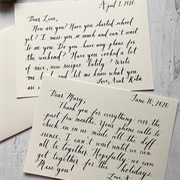 April 7, 2020
Dear Lisa,
How are you? Have you started school
yet? I miss you so much and can't wait
to see you. Do you have any plans for
the weekend? Have you cooked a lots
of nice, new recipes lately? Write
me and let me know what you
are
Love, Aunt
June 10, 2020
Dear Mary,
Thank you for everything over the
past few months. Your phone calls to
check in on us made all the diff
erence. I can't wait until we can
all be together. Hopefully, we can
get together for the holidays.
Miss you!
Love,